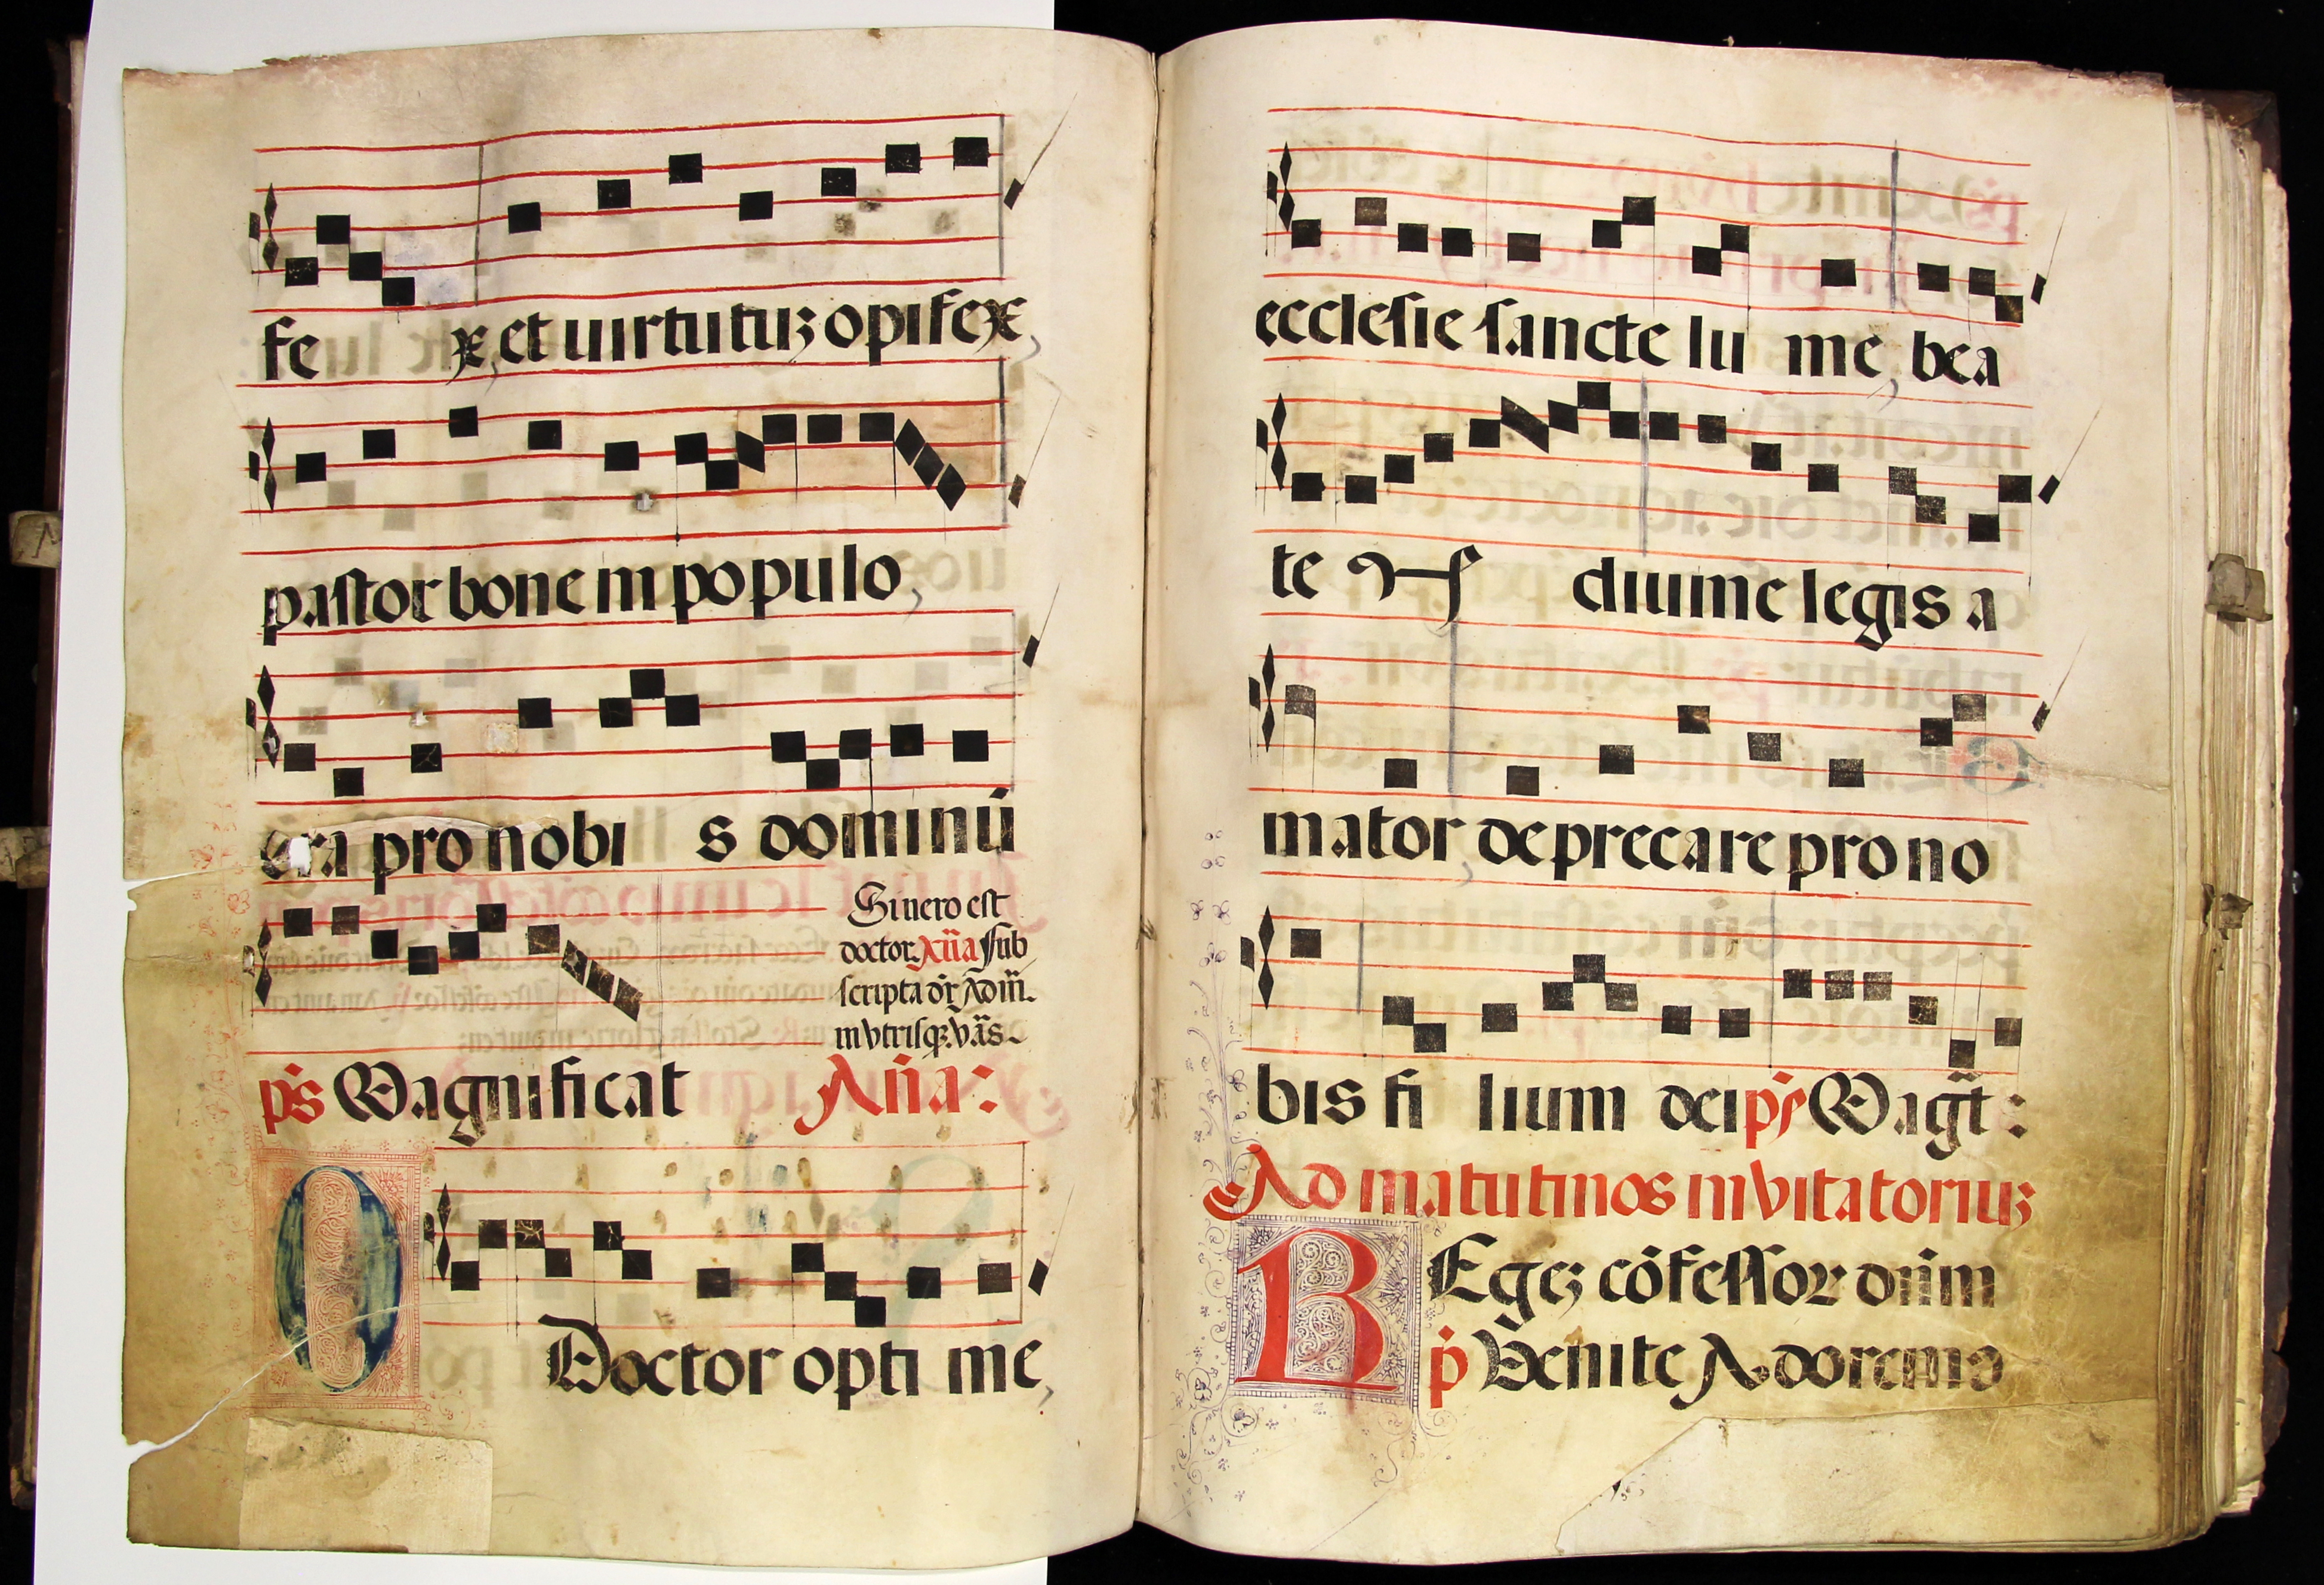 fe x, et uirtutuʒ opifex,
pastor bone in populo,
ora pro nobi s dominū
Si uero est
doctor. Añā sub
scripta dr̄. Ad m̄.
in vtrisqꝫ. vās.
p̄s Magnificat Añā:
O Doctor opti me,
ecclesie sancte lu me, bea
te diuine legis a
mator, deprecare pro no
bis fi lium dei p̄s Mag̃t:
Ad matutinos inuitatoriuʒ
REgeʒ cōfessor dn̄m
p̄ Venite Adoremꝰ